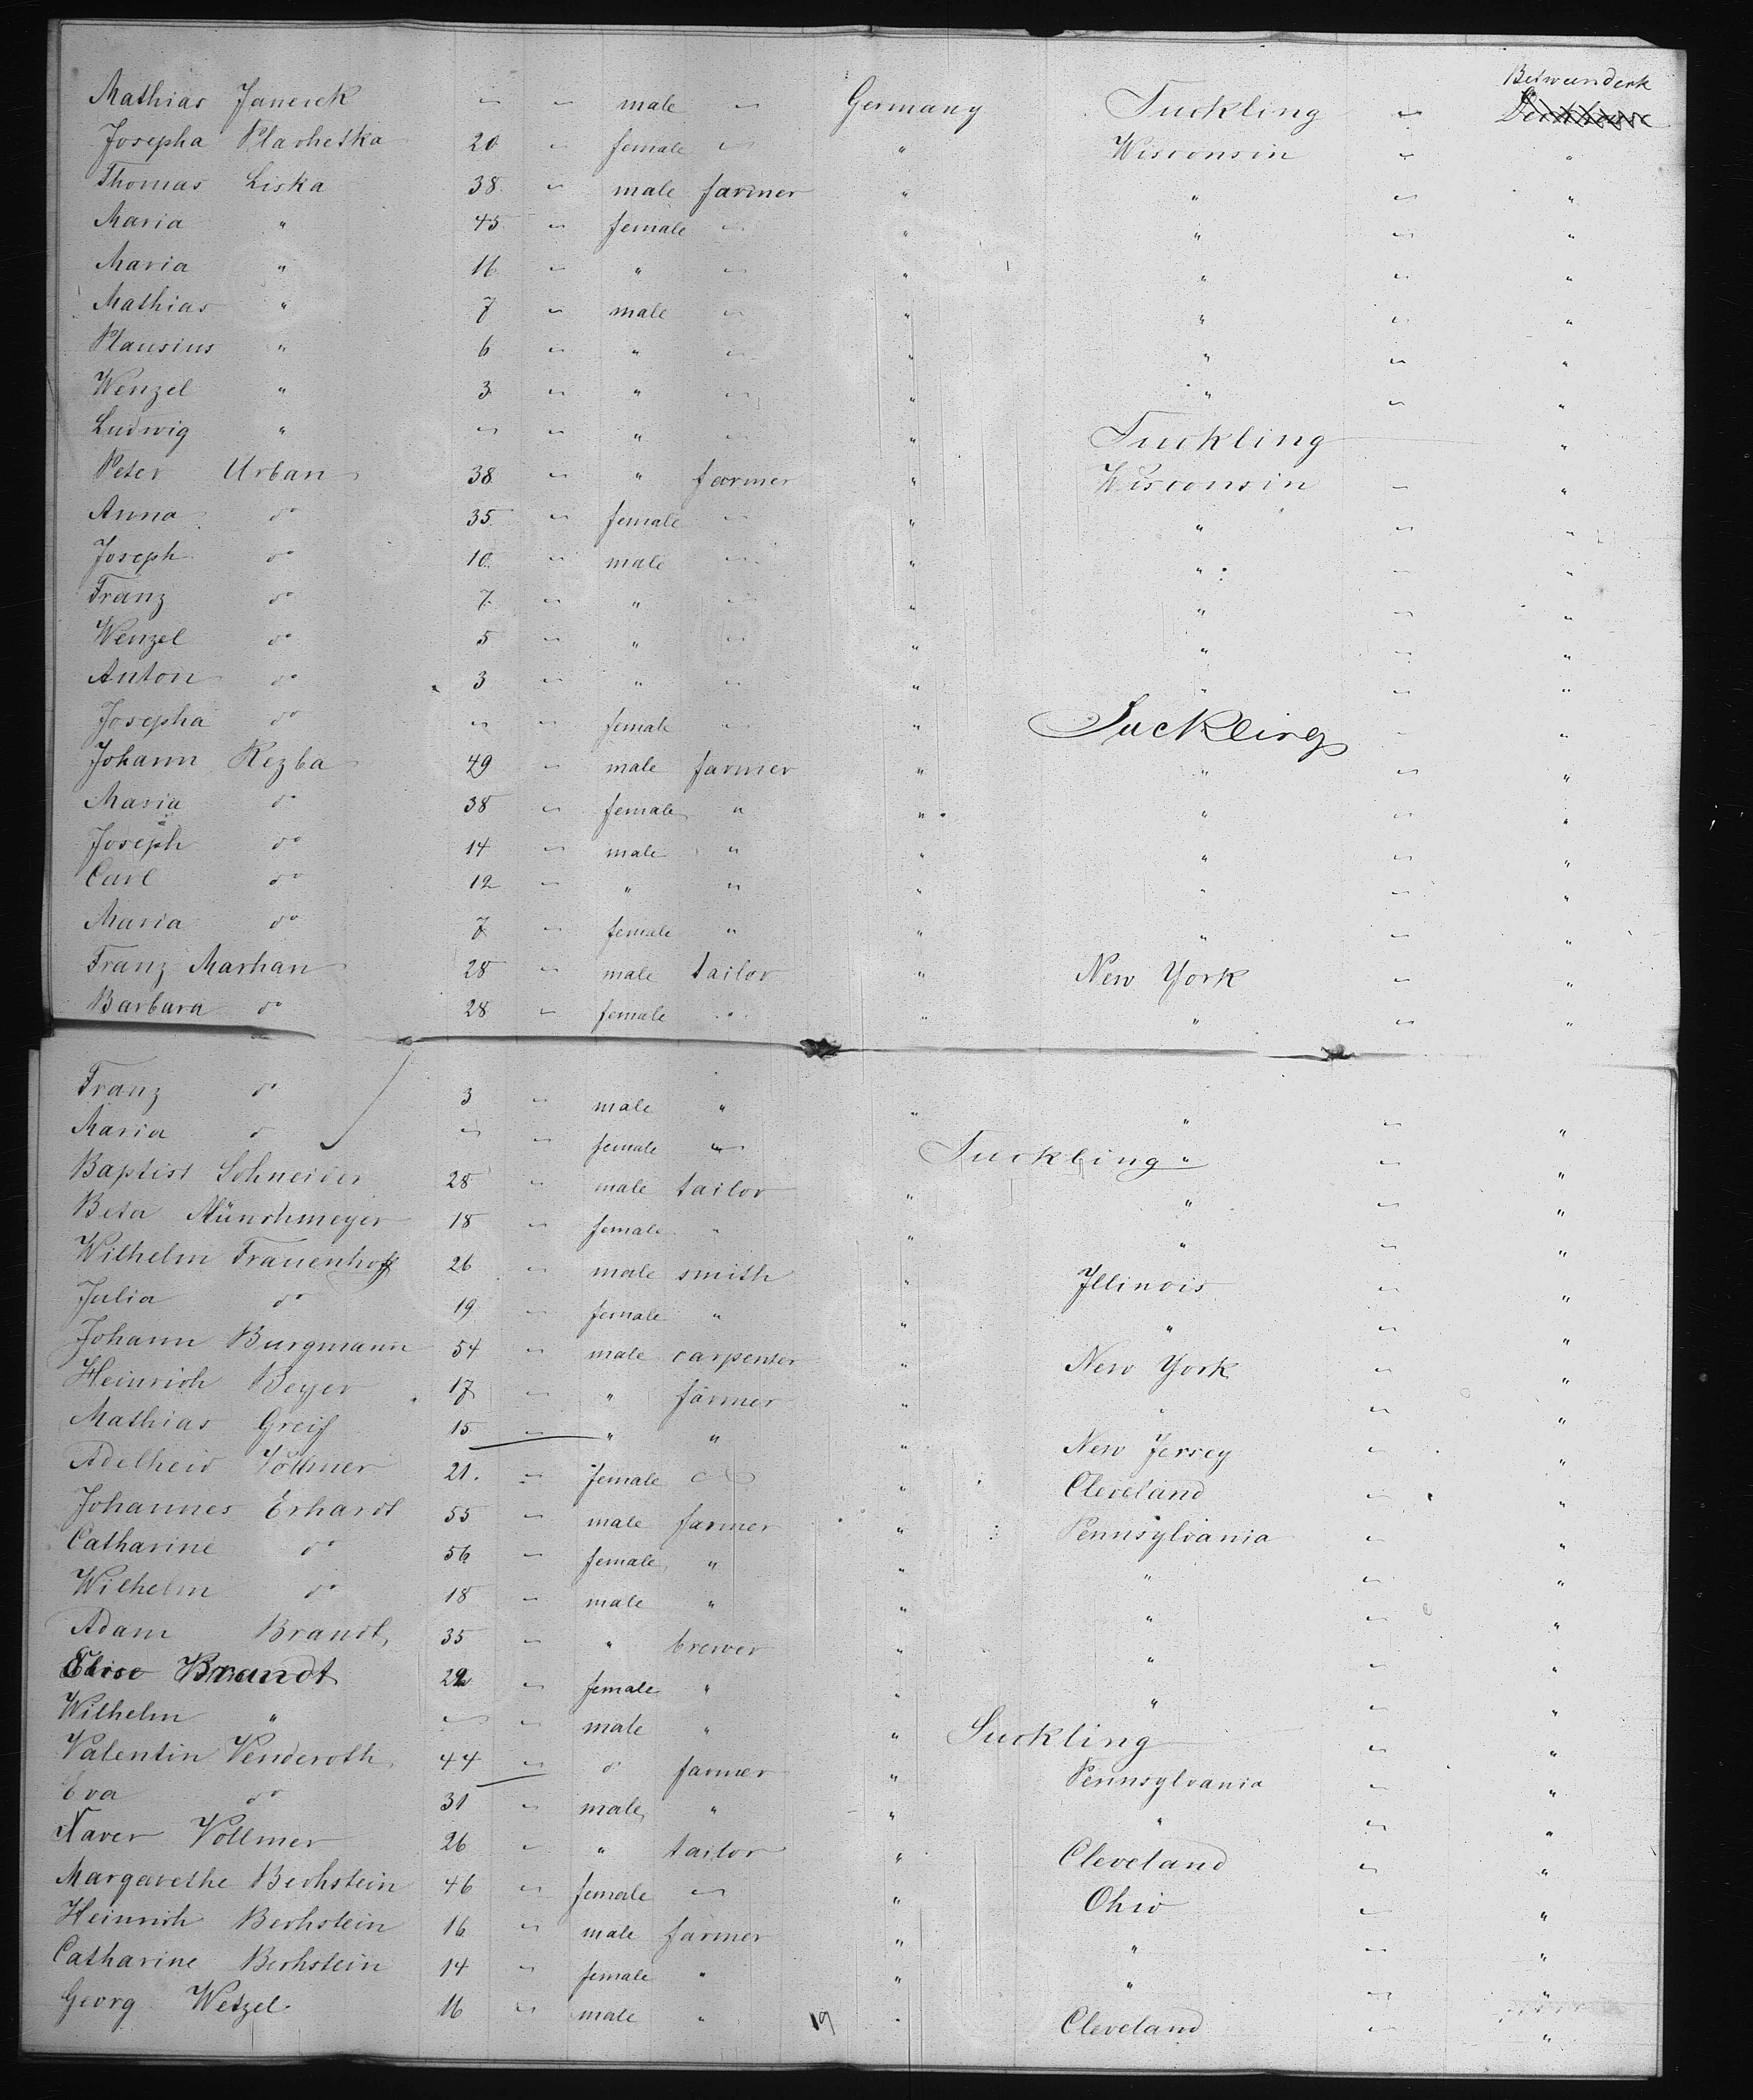 Betweenderk
Mathias Janecek — — male — Germany Suckling — Deckhave
Josepha Plachetka 20 — female — " Wisconsin — "
Thomas Liska 38 — male farmer " " — "
Maria " 45 — female — " " — "
Maria " 16 — " — " " — "
Mathias " 7 — male — " " — "
Plausius " 6 — " — " " — "
Wenzel " 3 — " — " " — "
Ludwig " — — " — " Suckling "
Peter Urban 38 — " farmer " Wisconsin — "
Anna do 35 — female — " " — "
Joseph do 10 — male — " " — "
Franz do 7 — " — " " — "
Wenzel do 5 — " — " " — "
Anton do 3 — " — " " — "
Josepha do — — female — " Suckling — "
Johann Rezba 49 — male farmer " " — "
Maria do 38 — female " " " — "
Joseph do 14 — male " " " — "
Carl do 12 — " " " " — "
Maria do 7 — female " " " — "
Franz Machan 28 — male tailor " New York — "
Barbara do 28 — female " " " — "
Franz do 3 — male " " " — "
Maria do — — female " Suckling " — "
Baptist Schneider 28 — male tailor " " — "
Beta Münchmeyer 18 — female " " " — "
Wilhelm Frauenhoff 26 — male smith " Illinois — "
Julia do 19 — female " " " — "
Johann Burgmann 54 — male carpenter " New York — "
Heinrich Beyer 17 — " farmer " " — "
Mathias Greif 15 — " " " New Jersey — "
Adelheid Vollmer 21 — female — " Cleveland — "
Johannes Erhardt 55 — male farmer " Pennsylvania — "
Catharine do 56 — female " " " — "
Wilhelm do 18 — male " " " — "
Adam Brandt 35 — " brewer " " — "
Elise Brandt 22 — female " " " — "
Wilhelm " — — male " " Suckling — "
Valentin Venderoth 44 — do farmer " Pennsylvania — "
Eva do 31 — male " " " — "
Xaver Vollmer 26 — " tailor " Cleveland — "
Margarethe Bechstein 46 — female — " Ohio — "
Heinrich Bechstein 16 — male farmer " " — "
Catharine Bechstein 14 — female " " " — "
Georg Wetzel 16 — male " 19 " Cleveland — "